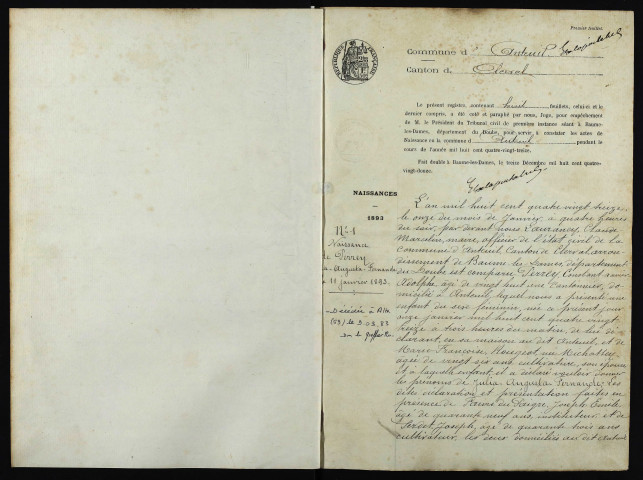 Premier feuillet
Commune d'Anteuil
Canton de Clerval
RÉPUBLIQUE FRANÇAISE
Le présent registre, contenant huit feuillets, celui-ci et le
dernier compris, a été coté et paraphé par nous, Juge, pour empêchement
de M. le Président du Tribunal civil de première instance séant à Baume-
les-Dames, département du Doubs, pour servir à constater les actes de
Naissance en la commune d'Anteuil pendant le
cours de l'année mil huit cent quatre-vingt-treize.
Fait double à Baume-les-Dames, le treize Décembre mil huit cent quatre-
vingt-douze.
NAISSANCES
1893
No 1
Naissance
de Perrey
Augusta Fernande
11 janvier 1893.
Décédée à
le 9.03.83
L'an mil huit cent quatre vingt treize,
le onze du mois de janvier, à quatre heures
du soir, par devant nous Claude
maire, officier de l'état civil de la
Commune d'Anteuil, Canton de Clerval, arron
dissement de Baume les Dames, département
du Doubs est comparu Perrey Constant
âgé de vingt huit ans Cantonnier, do
micilié à Anteuil, lequel nous a présenté un
enfant du sexe féminin, né à présent jour
onze janvier mil huit cent quatre vingt
treize à trois heures du matin, de lui dé
clarant, en sa maison au dit Anteuil, et de
Marie Françoise
âgée de vingt six ans cultivatrice, son épouse
et à laquelle enfant, il a déclaré vouloir donner
les prénoms de Julia Augusta Fernande. Les
dites déclaration et présentation faites en
présence de Joseph Emile
âgé de quarante neuf ans, instituteur, et de
Joseph, âgé de quarante trois ans
cultivateur, les deux domiciliés au dit Anteuil